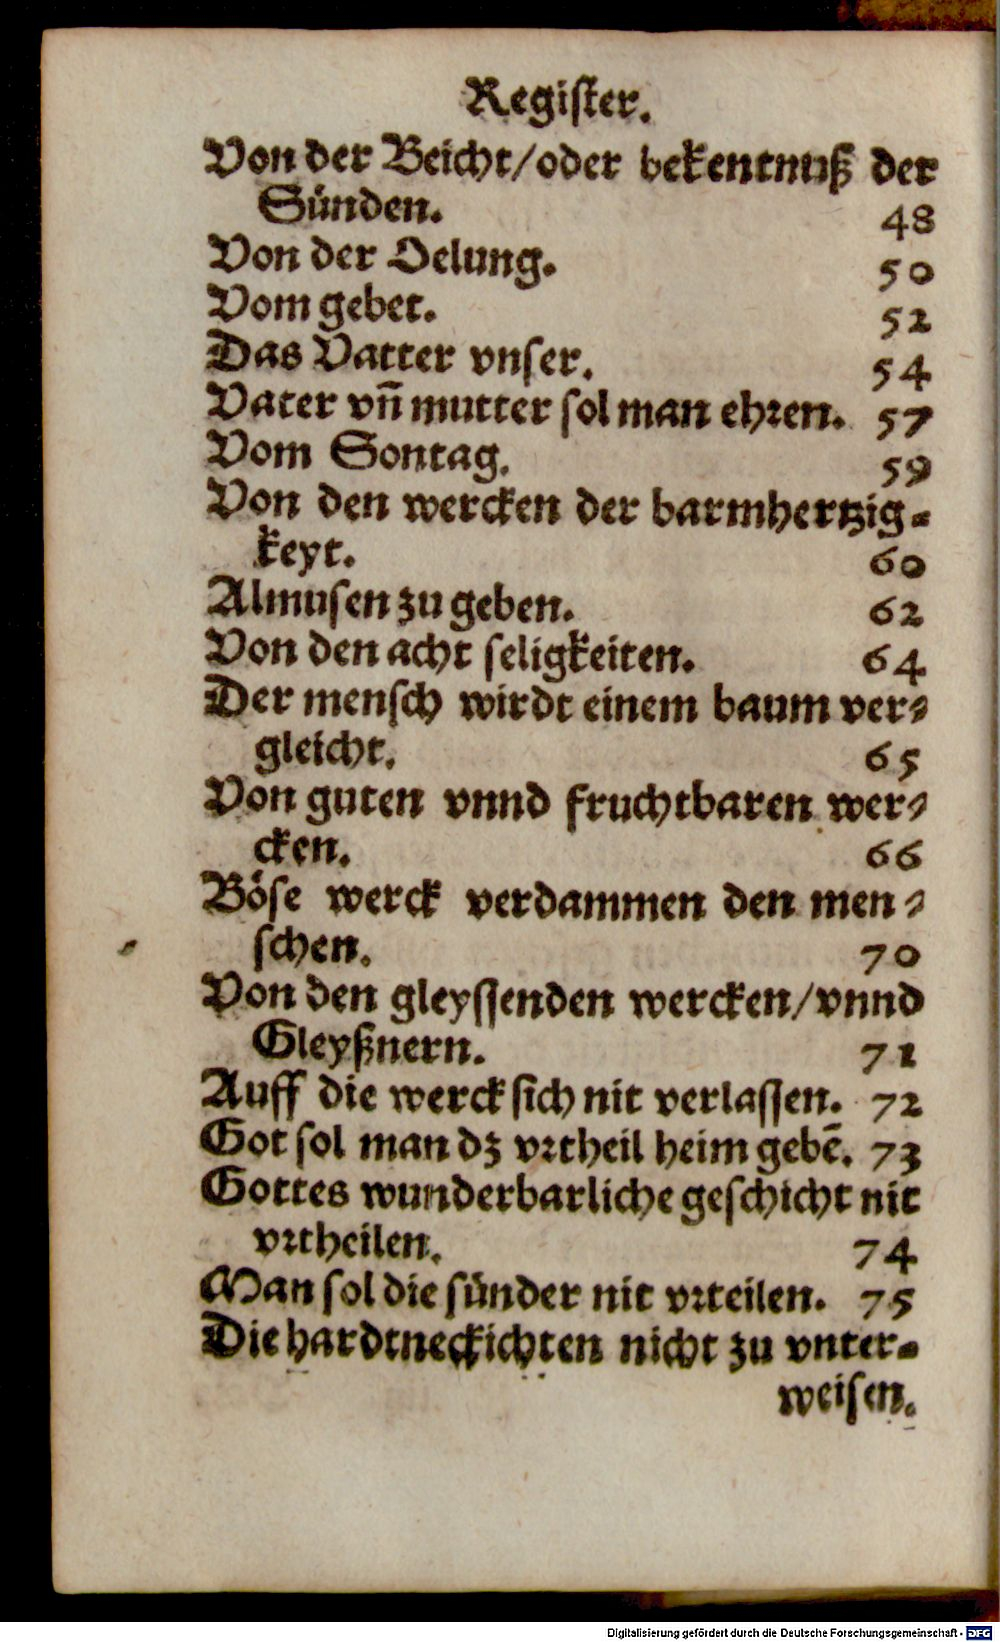 Register.
Von der Beicht/oder bekentnuß der
Sünden. 48
Von der Oelung. 50
Vom gebet. 52
Das Vatter vnser. 54
Vater vñ mutter sol man ehren. 57
Vom Sontag. 59
Von den wercken der barmhertzig-
keyt. 60
Almusen zu geben. 62
Von den acht seligkeiten. 64
Der mensch wirdt einem baum ver-
gleicht. 65
Von guten vnnd fruchtbaren wer-
cken. 66
Böse werck verdammen den men-
schen. 70
Von den gleyssenden wercken/vnnd
Gleyßnern. 71
Auff die werck sich nit verlassen. 72
Got sol man dz vrtheil heim gebē. 73
Gottes wunderbarliche geschicht nit
vrtheilen. 74
Man sol die sünder nit vrteilen. 75
Die hardtneckichten nicht zu vnter-
weisen.
Digitalisierung gefördert durch die Deutsche Forschungsgemeinschaft - DFG